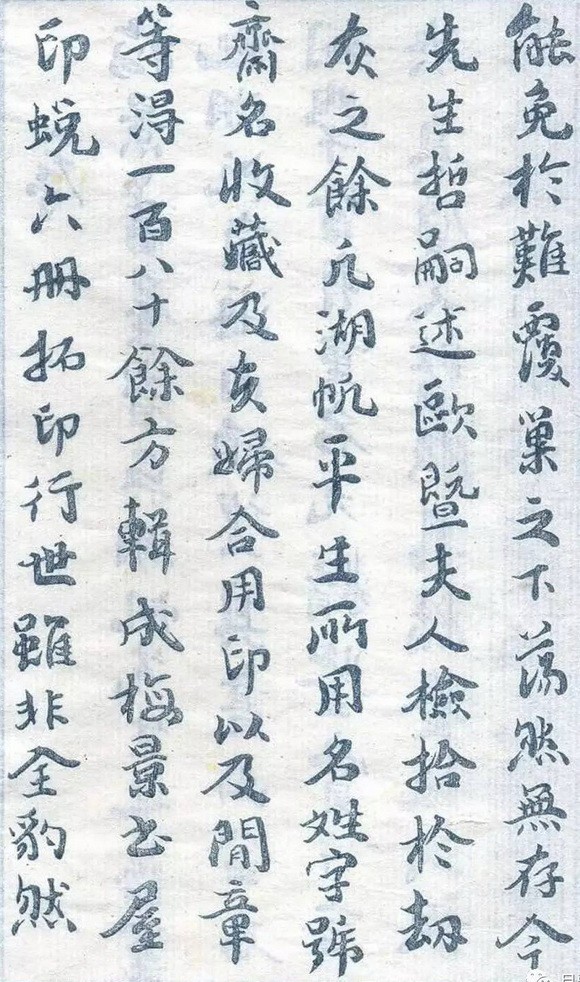 能免於難覆巢之下蕩然無存今
先生哲嗣述歐暨夫人檢拾於劫
灰之餘凡湖帆平生所用名姓字號
齋名收藏及夫婦合用印以及閒章
等得一百八十餘方輯成梅景书屋
印蜕六冊拓印行世雖非全豹然